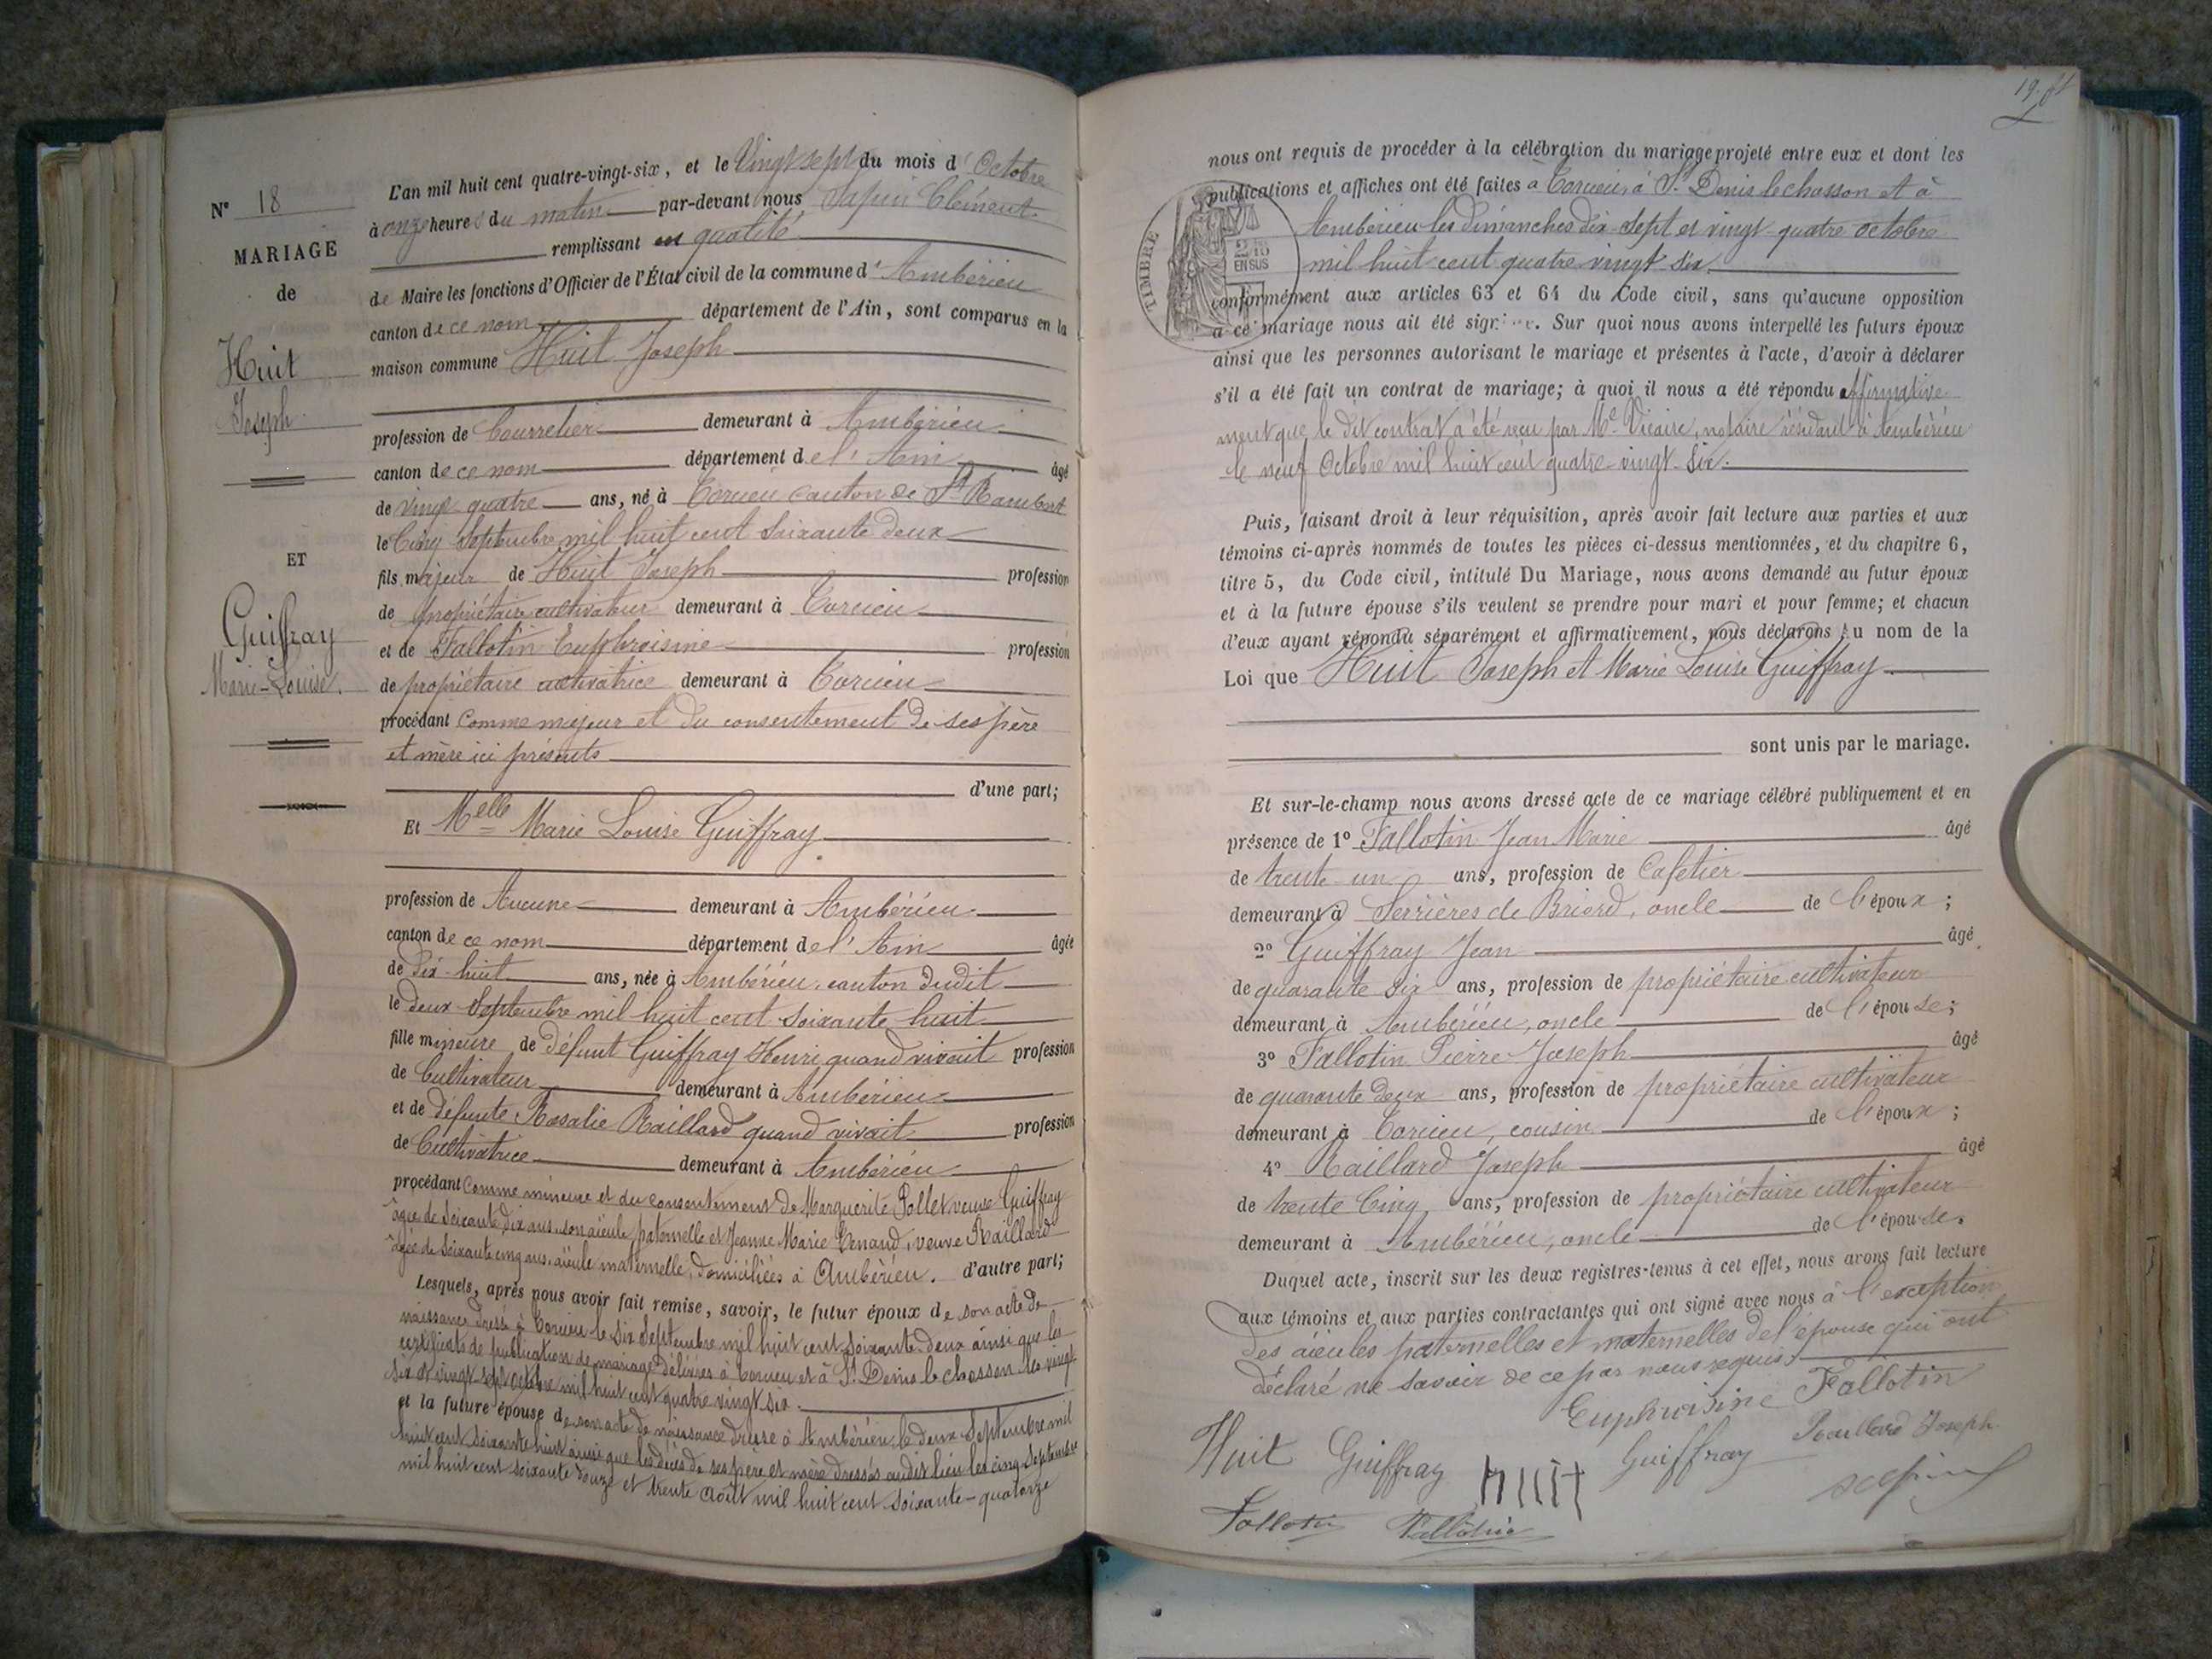 N° 18
MARIAGE
de
Huit
Joseph
ET
Guiffray
Marie-Louise.
L'an mil huit cent quatre-vingt-six, et le Vingt sept du mois d'Octobre
à onze heures du matin par-devant nous Sapin Clément
remplissant en qualité
de Maire les fonctions d'Officier de l'État civil de la commune d'Ambérieu
canton de ce nom département de l'Ain, sont comparus en la
maison commune Huit Joseph
profession de Bourrelier demeurant à Ambérieu
canton de ce nom département de l'Ain âgé
de vingt quatre ans, né à Torcieu canton de St Rambert
le Cinq Septembre mil huit cent soixante deux
fils majeur de Huit Joseph profession
de propriétaire cultivateur demeurant à Torcieu
et de Fallotin Euphroisine profession
de propriétaire cultivatrice demeurant à Torcieu
procédant comme majeur et du consentement de ses père
et mère ici présents
d'une part;
Et Melle Marie Louise Guiffray
profession de Aucune demeurant à Ambérieu
canton de ce nom département de l'Ain âgée
de Dix-huit ans, née à Ambérieu, canton dudit
le deux Septembre mil huit cent soixante huit
fille mineure de défunt Guiffray Henri quand vivait profession
de Cultivateur demeurant à Ambérieu
et de défunte Rosalie Raillard quand vivait profession
de Cultivatrice demeurant à Ambérieu
procédant comme mineure et du consentement de Marguerite Pollet veuve Guiffray
âgée de soixante dix ans son aïeule paternelle et Jeanne Marie veuve Raillard
âgée de soixante cinq ans aïeule maternelle, domiciliées à Ambérieu. d'autre part;
Lesquels, après nous avoir fait remise, savoir, le futur époux de son acte de
naissance dressé à Torcieu le six Septembre mil huit cent soixante deux ainsi que les
certificats de publication de mariage délivrés à Torcieu et à St Denis le chosson les vingt
six et vingt sept octobre mil huit cent quatre vingt six.
et la future épouse de son acte de naissance dressé à Ambérieu le deux Septembre mil
huit cent soixante huit ainsi que les décès de ses père et mère dressés audit lieu les cinq Septembre
mil huit cent soixante douze et trente août mil huit cent soixante-quatorze
19.
nous ont requis de procéder à la célébration du mariage projeté entre eux et dont les
publications et affiches ont été faites à Torcieu à St Denis le chosson et à
Ambérieu les dimanches dix-sept et vingt-quatre octobre
mil huit cent quatre vingt six
TIMBRE
EN SUS
conformément aux articles 63 et 64 du Code civil, sans qu'aucune opposition
à ce mariage nous ait été signifiée. Sur quoi nous avons interpellé les futurs époux
ainsi que les personnes autorisant le mariage et présentes à l'acte, d'avoir à déclarer
s'il a été fait un contrat de mariage; à quoi il nous a été répondu affirmative
ment que le dit contrat a été reçu par Me Vicaire, notaire résidant à Ambérieu
le neuf Octobre mil huit cent quatre-vingt-six.
Puis, faisant droit à leur réquisition, après avoir fait lecture aux parties et aux
témoins ci-après nommés de toutes les pièces ci-dessus mentionnées, et du chapitre 6,
titre 5, du Code civil, intitulé Du Mariage, nous avons demandé au futur époux
et à la future épouse s'ils veulent se prendre pour mari et pour femme; et chacun
d'eux ayant répondu séparément et affirmativement, nous déclarons au nom de la
Loi que Huit Joseph et Marie Louise Guiffray
sont unis par le mariage.
Et sur-le-champ nous avons dressé acte de ce mariage célébré publiquement et en
présence de 1° Fallotin Jean Marie âgé
de trente un ans, profession de Cafetier
demeurant à Serrières de Briord, oncle de l'époux;
2° Guiffray Jean âgé
de quarante six ans, profession de propriétaire cultivateur
demeurant à Ambérieu, oncle de l'épouse;
3° Fallotin Pierre-Joseph âgé
de quarante deux ans, profession de propriétaire cultivateur
demeurant à Torcieu, cousin de l'époux;
4° Raillard Joseph âgé
de trente Cinq ans, profession de propriétaire cultivateur
demeurant à Ambérieu, oncle de l'épouse.
Duquel acte, inscrit sur les deux registres-tenus à cet effet, nous avons fait lecture
aux témoins et aux parties contractantes qui ont signé avec nous à l'exception
des aïeules paternelles et maternelles de l'épouse qui ont
déclaré ne savoir de ce par nous requis.
Euphroisine Fallotin
Huit Guiffray HUIT Guiffray Raillard Joseph
Sapin
Fallotin Fallotin